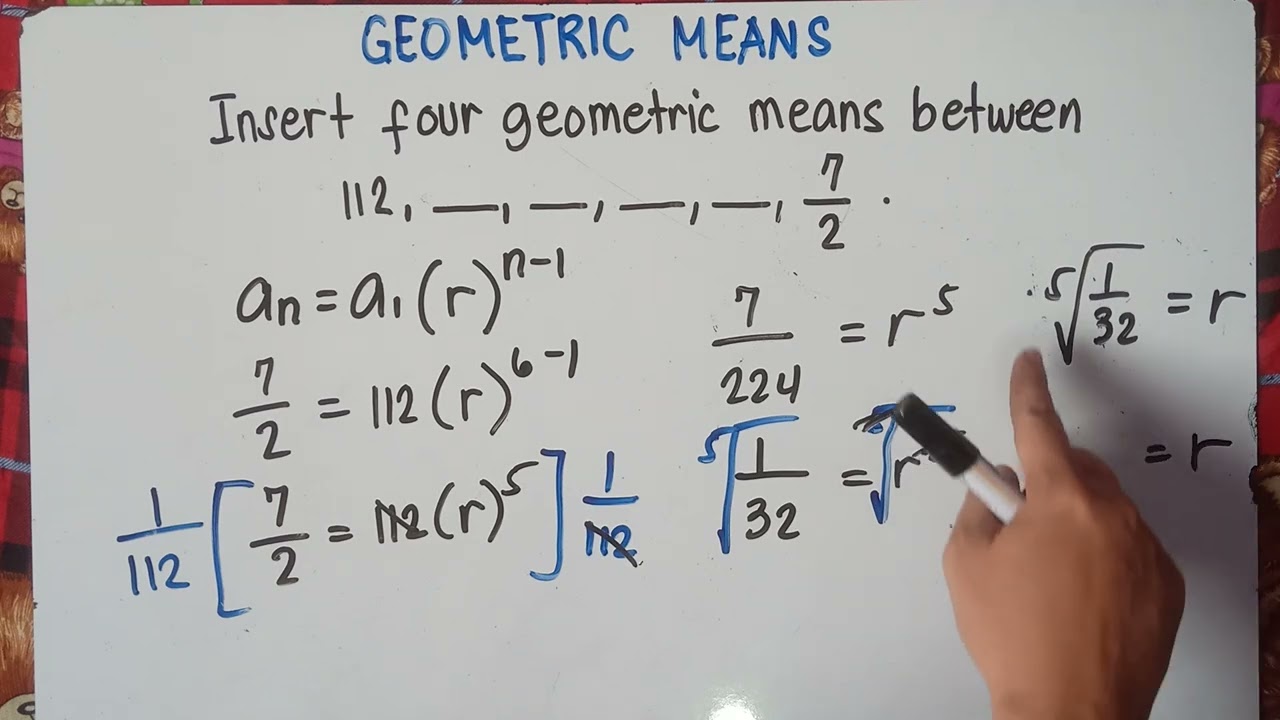 GEOMETRIC MEANS
Insert four geometric means between
112, __, __, __, __, 7/2 .
aₙ = a₁(r)ⁿ⁻¹
7/2 = 112(r)⁶⁻¹
1/112 [7/2 = 112(r)⁵] 1/112
7/224 = r⁵
⁵√(1/32) = √r
⁵√(1/32) = r
= r